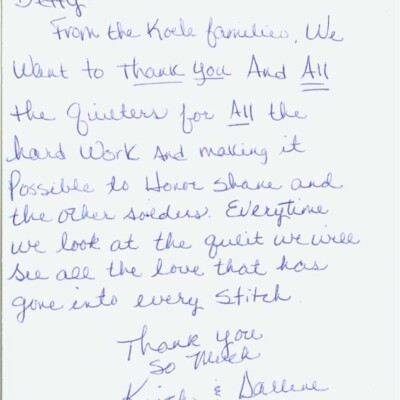 Betty
From the Koele families. We
Want to Thank You And All
the quilters for All the
hard Work And making it
Possible to Honor Shane and
the other soliders. Everytime
we look at the quilt we will
see all the love that has
gone into every Stitch.
Thank You
So Much
Keith & Darlene